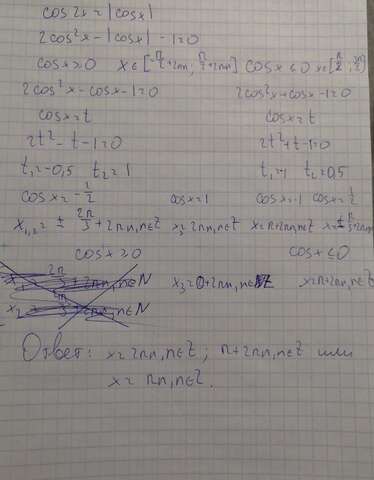 cos2x = |cosx|
2cos²x - |cosx| - 1 = 0
cosx ≥ 0 x ∈ [-π/2 + 2πn; π/2 + 2πn] cosx ≤ 0 x ∈ [π/2; 3π/2]
2cos²x - cosx - 1 = 0 2cos²x + cosx - 1 = 0
cosx = t cosx = t
2t² - t - 1 = 0 2t² + t - 1 = 0
t₁ = -0,5 t₂ = 1 t₁ = -1 t₂ = 0,5
cosx = -1/2 cosx = 1 cosx = -1 cosx = 1/2
x₁,₂ = ± 2π/3 + 2πn, n∈Z x₃ = 2πn, n∈Z x = π + 2πn, n∈Z x = ± π/3 + 2πn
cosx ≥ 0 cosx ≤ 0
x₃ = 0 + 2πn, n∈Z x = π + 2πn, n∈Z
Ответ: x = 2πn, n∈Z; π + 2πn, n∈Z или
x = πn, n∈Z.